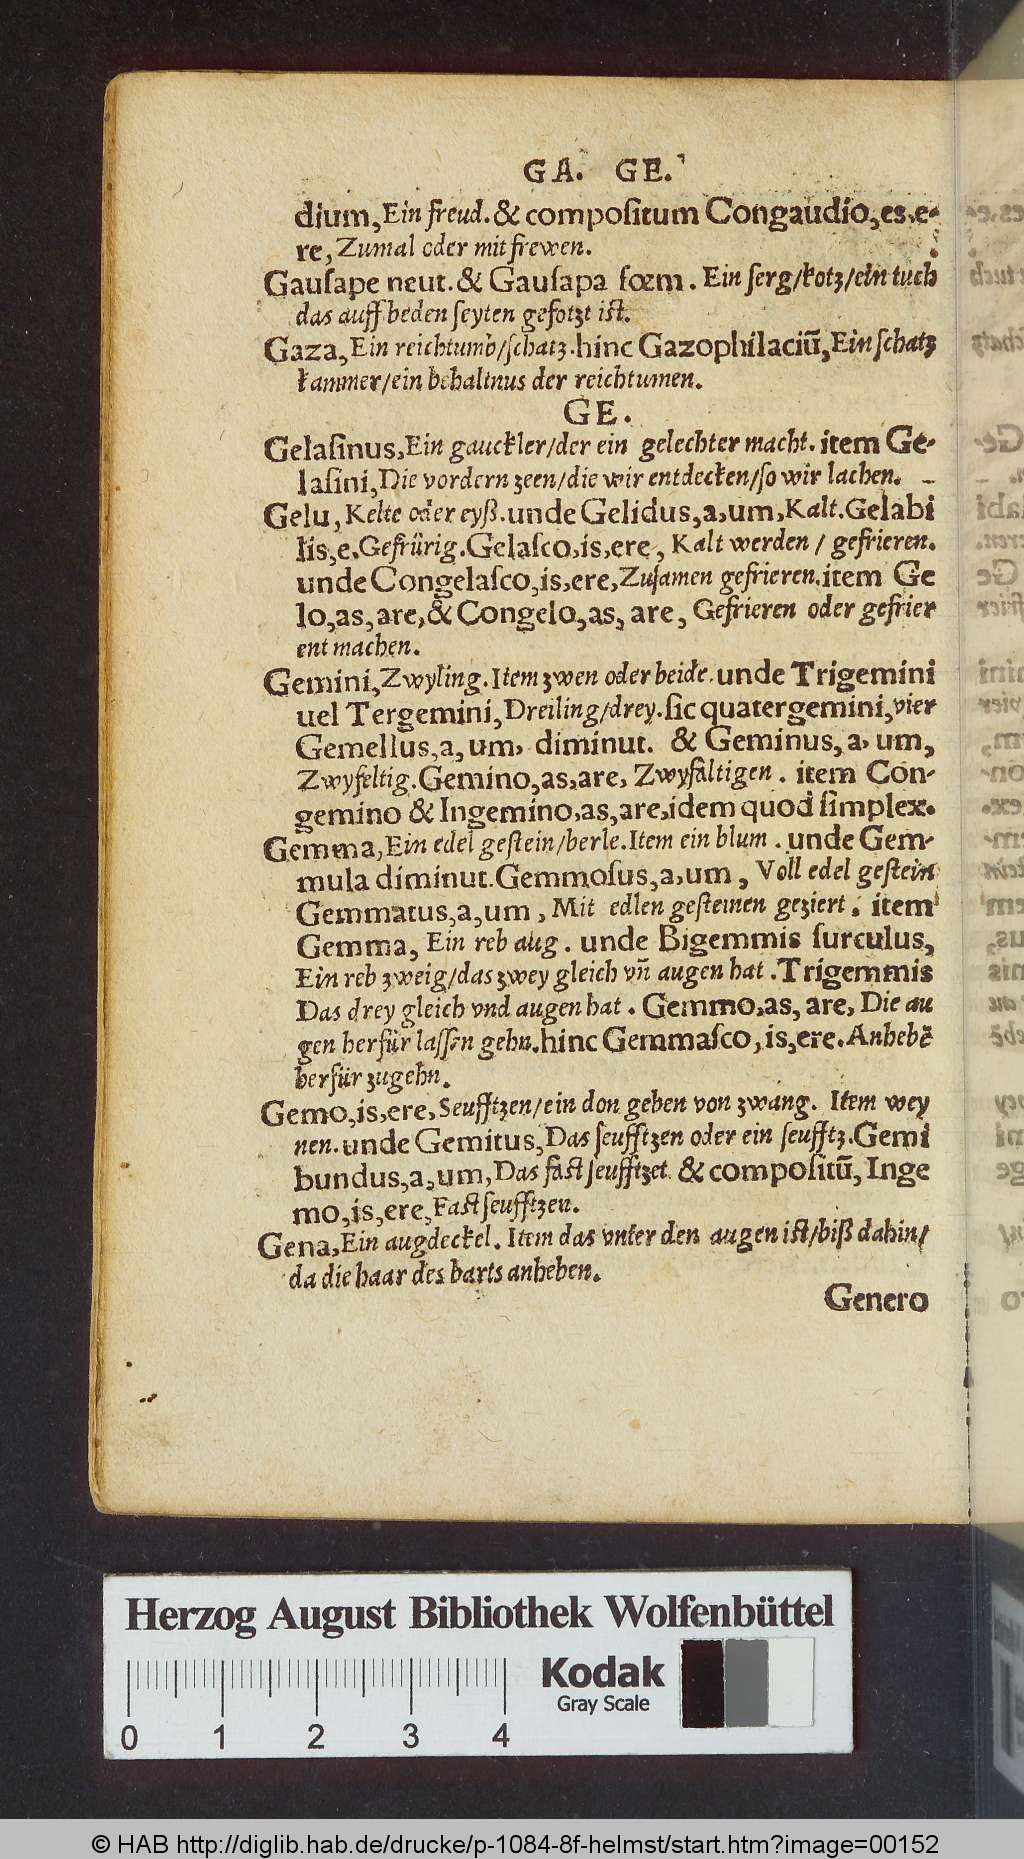 GA. GE.
dium, Ein freud. & compoſitum Congaudio, es, e-
re, Zumal oder mit frewen.
Gauſape neut. & Gauſapa fœm. Ein ſerg/kotz/ein tuch
das auff beden ſeyten gefotzt iſt.
Gaza, Ein reichtumb/ſchatz. hinc Gazophilaciū, Ein ſchatz
kammer/ein behaltnus der reichtumen.
GE.
Gelaſinus, Ein gauckler/der ein gelechter macht. item Ge-
laſini, Die vordern zeen/die wir entdecken/ſo wir lachen.
Gelu, Kelte oder eyß. unde Gelidus, a, um, Kalt. Gelabi
lis, e. Gefrürig. Gelaſco, is, ere, Kalt werden / gefrieren.
unde Congelaſco, is, ere, Zuſamen gefrieren. item Ge
lo, as, are, & Congelo, as, are, Gefrieren oder gefrier
ent machen.
Gemini, Zwyling. Item zwen oder beide. unde Trigemini
uel Tergemini, Dreiling/drey. ſic quatergemini, vier
Gemellus, a, um, diminut. & Geminus, a, um,
Zwyfeltig. Gemino, as, are, Zwyfältigen. item Con-
gemino & Ingemino, as, are, idem quod ſimplex.
Gemma, Ein edel geſtein/berle. Item ein blum. unde Gem-
mula diminut. Gemmoſus, a, um, Voll edel geſtein
Gemmatus, a, um, Mit edlen geſteinen geziert. item
Gemma, Ein reb aug. unde Bigemmis ſurculus,
Ein reb zweig/das zwey gleich vñ augen hat. Trigemmis
Das drey gleich vnd augen hat. Gemmo, as, are, Die au
gen herfür laſſen gehn. hinc Gemmaſco, is, ere. Anhebē
herfür zugehn.
Gemo, is, ere, Seufftzen/ein don geben von zwang. Item wey
nen. unde Gemitus, Das ſeufftzen oder ein ſeufftz. Gemi
bundus, a, um, Das faſt ſeufftzet. & compoſitū, Inge
mo, is, ere, Faſt ſeufftzen.
Gena, Ein augdeckel. Item das vnter den augen iſt/biß dahin/
da die haar des barts anheben.
Genero
Herzog August Bibliothek Wolfenbüttel
Kodak
Gray Scale
0 1 2 3 4
© HAB http://diglib.hab.de/drucke/p-1084-8f-helmst/start.htm?image=00152